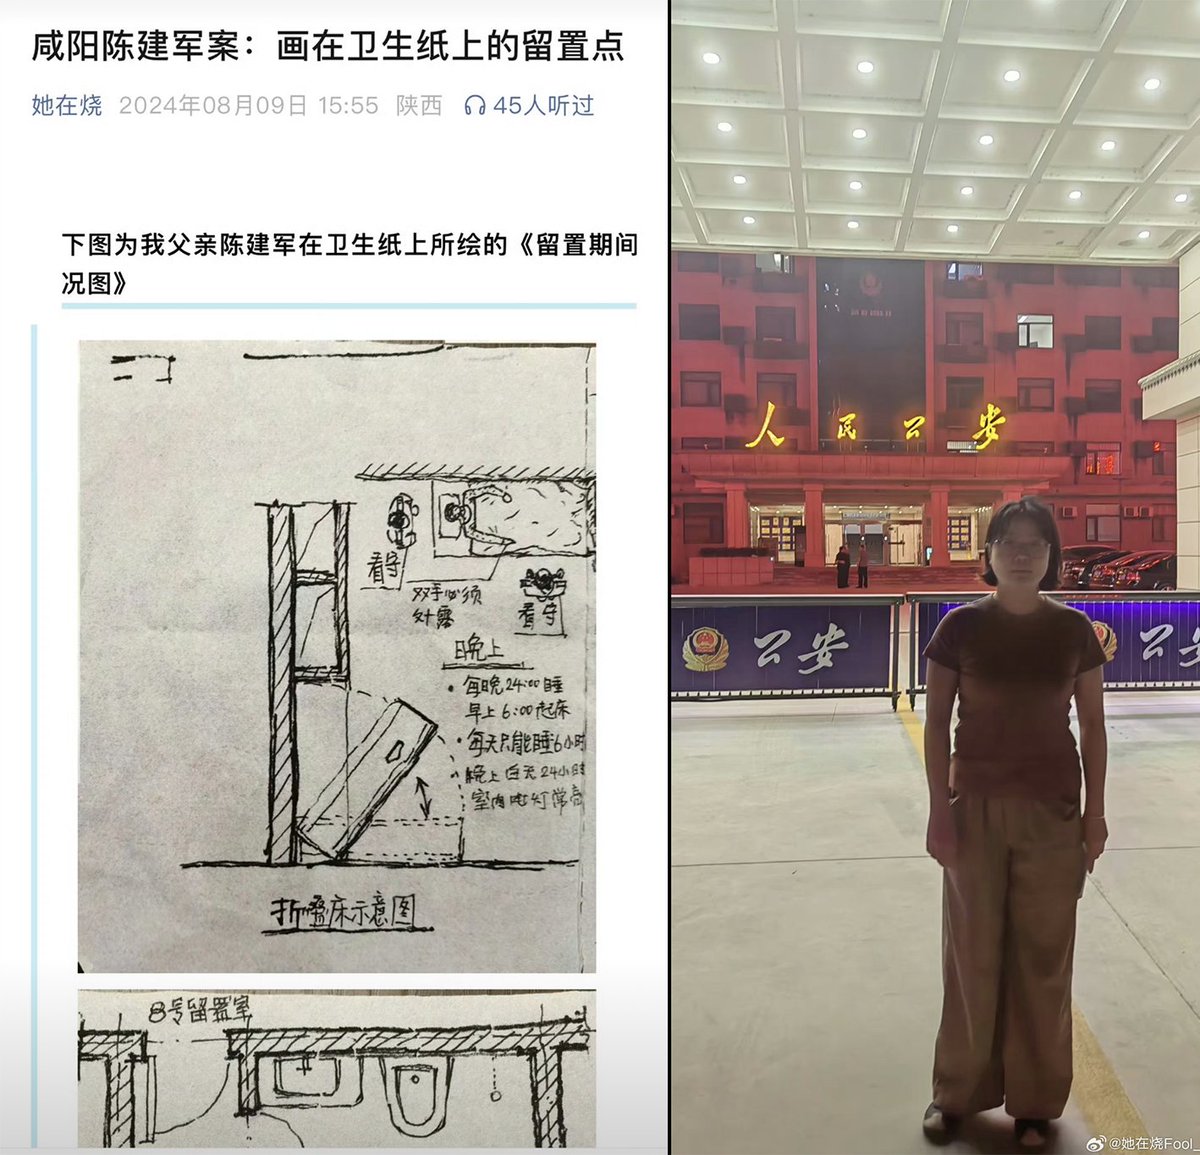 咸阳陈建军案：画在卫生纸上的留置点
她在烧 2024年08月09日 15:55 陕西 45人听过
下图为我父亲陈建军在卫生纸上所绘的《留置期间
况图》
看守
双手必须
外露
看守
晚上
• 每晚24:00睡
早上6:00起床
• 每天只能睡6小时
• 晚上白天24小时
室内电灯常亮
折叠床示意图
8号留置室
人民公安
公安
公安
@她在烧Fool_